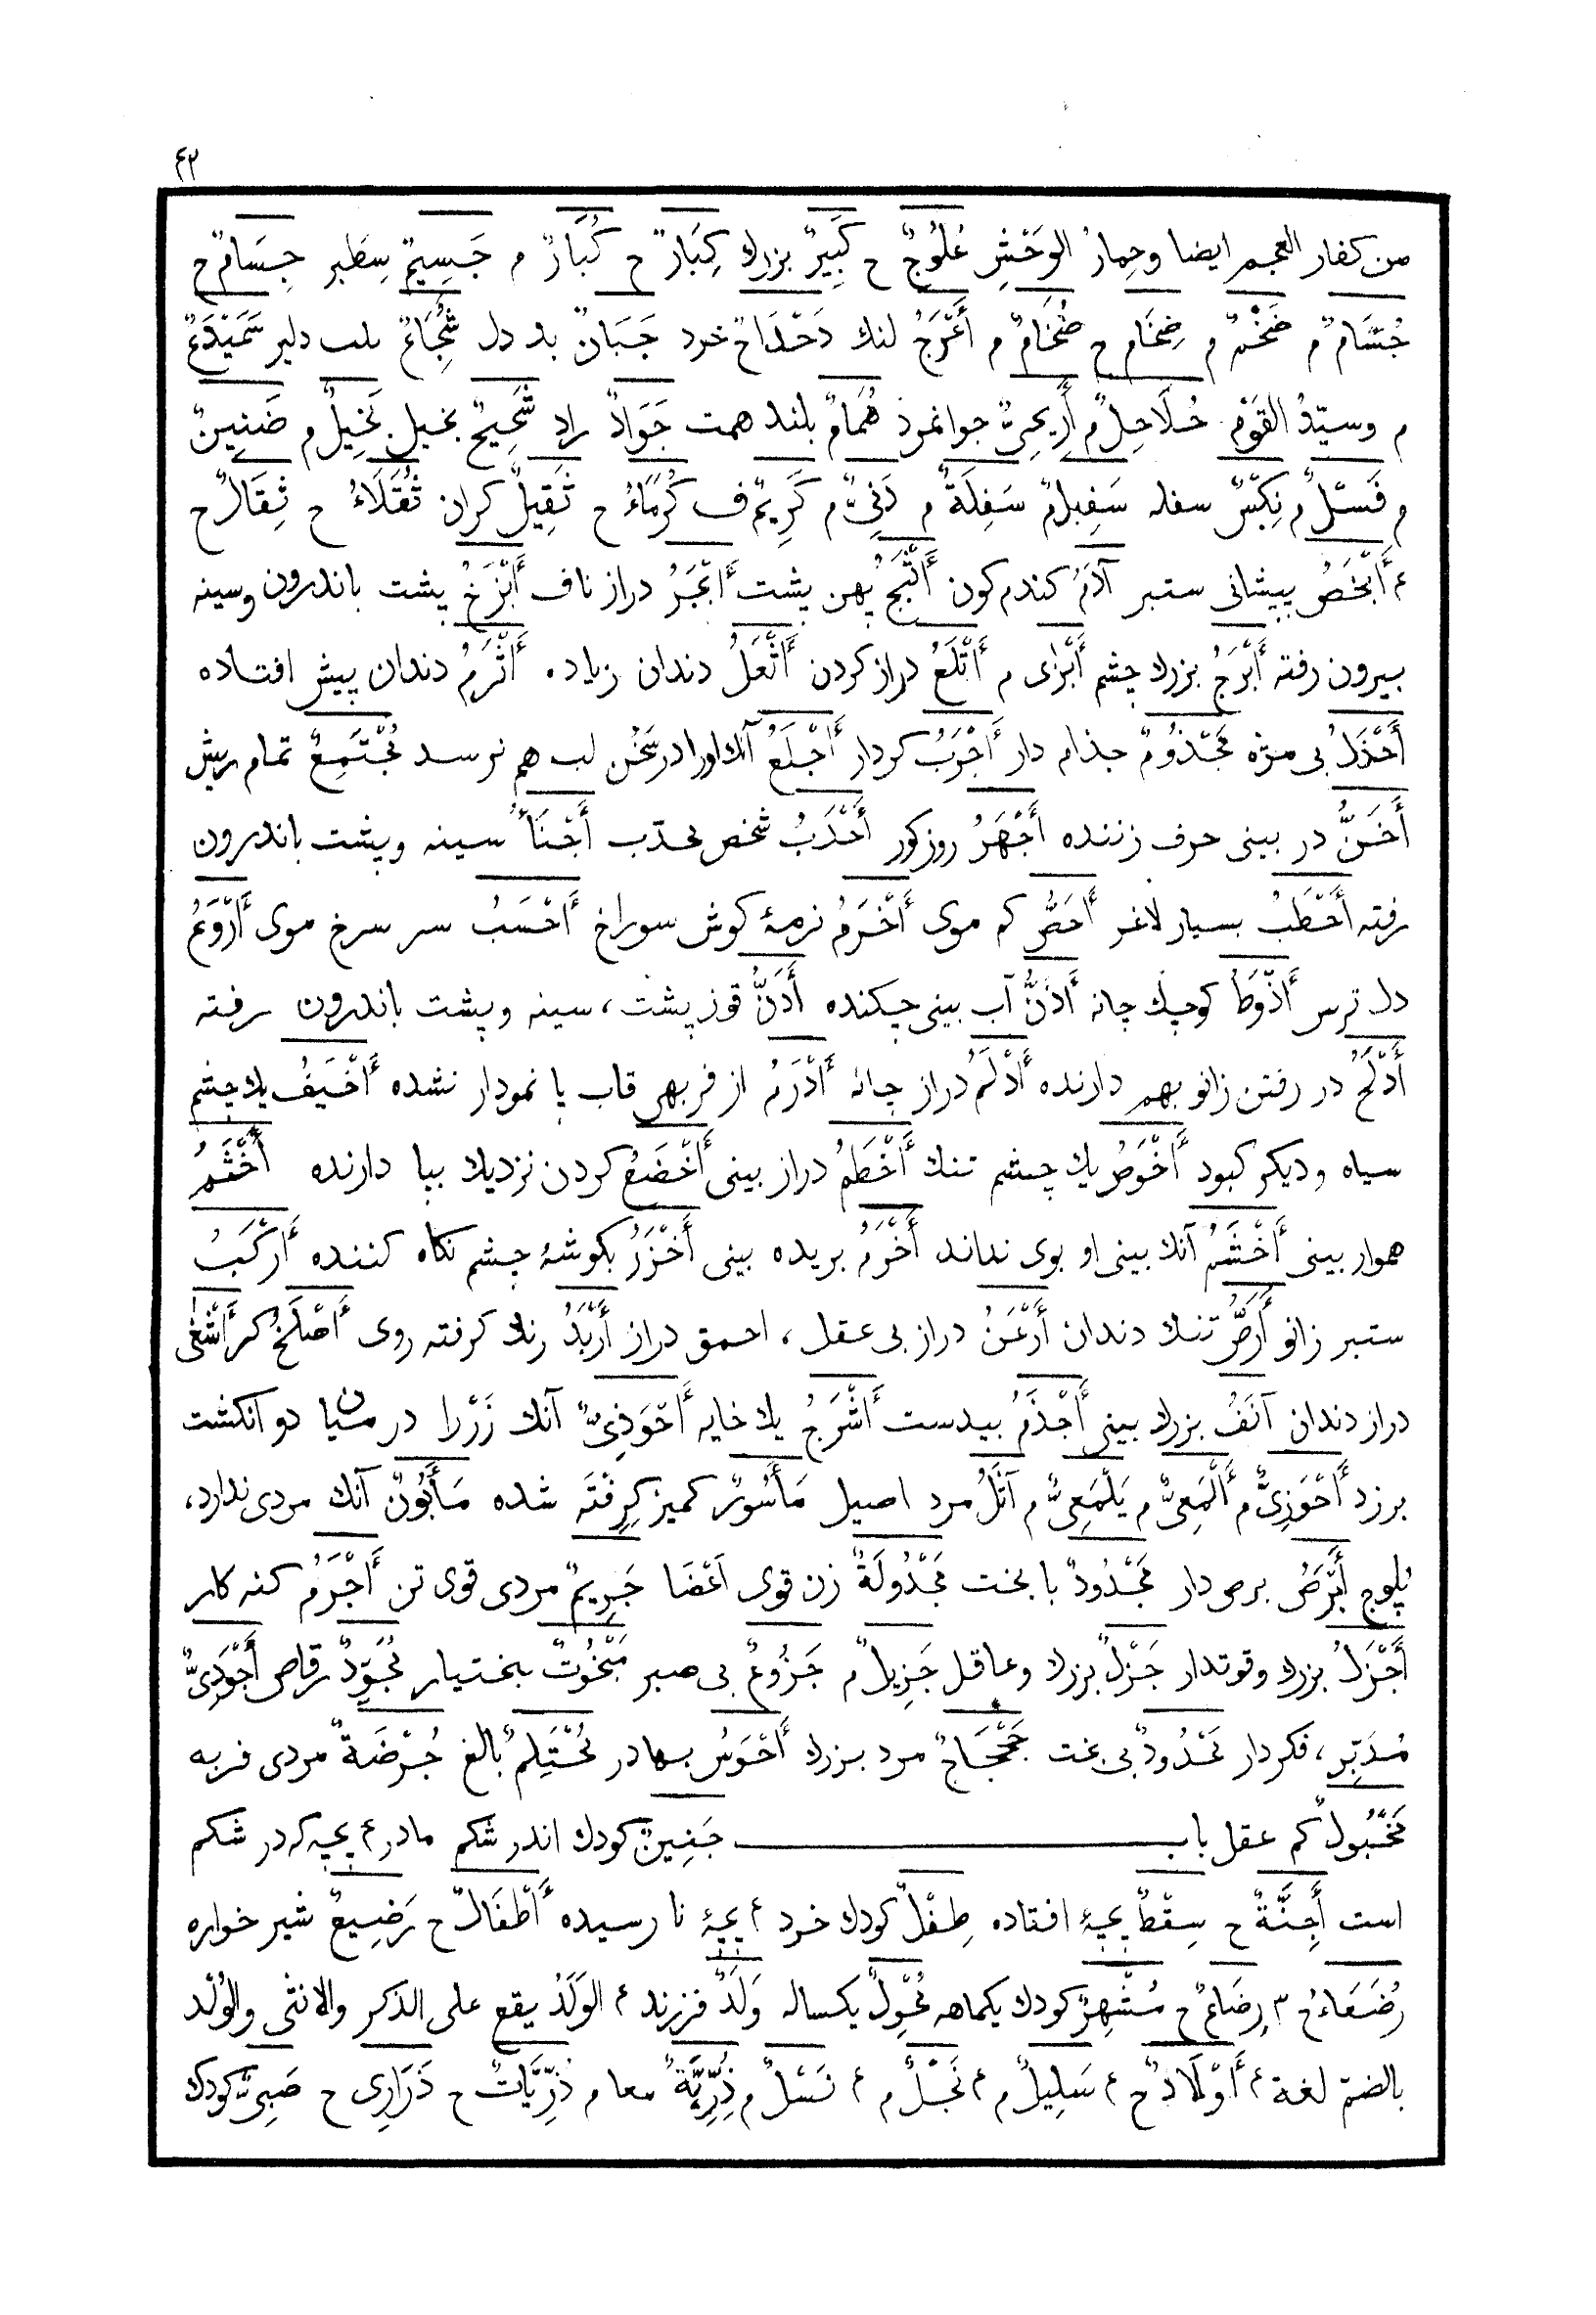 ٤٣
من كفار العجم ايضا وحِمارُ الوَحْشِ عُلُوجٌ ح كَبِيرٌ بزرك كِبَارٌ ح كُبَارٌ م جَسِيمٌ سِطَبر جِسَامٌ ح
جُسَّامٌ م ضَخْمٌ م ضِخَام ح ضُخَامٌ م أَعْرَجُ لنك دَحْدَاحٌ خرد جَبَانٌ بد دل شُجَاعٌ دلير سَمَيْدَعٌ
م وسيّدُ القَوْمِ حُلَاحِلٌ م أَرْيَحِىٌّ جوانمرد هُمَامٌ بلند همت جَوَادٌ راد شَحِيحٌ بخيل بَخِيلٌ م ضَنِينٌ
م فَسْلٌ م نِكْسٌ سفله سَفِيلٌ م سَفِلَةٌ م دَنِىٌّ م كَرِيمٌ ف كُرَمَاءُ ح ثَقِيلٌ كران ثُقَلَاءُ ح ثِقَالٌ ح
ء أَبْخَصُ پيشانى ستبر آدَمُ كندم كون أَثْبَجُ پهن پشت أَبْجَرُ دراز ناف أَبْزَخُ پشت باندرون وسينه
بيرون رفته أَبْرَجُ بزرك چشم أَبْزَى م أَتْلَعُ دراز كردن أَثْعَلُ دندان زياده أَثْرَمُ دندان پيش افتاده
أَحْذَلُ بى مژه مَجْذُومٌ جذام دار أَجْرَبُ كردار أَجْلَعُ آنك اورا در سَخُن لب هم نرسد مُجْتَمِعٌ تمام ريش
أَخَنُّ در بينى حرف زننده أَجْهَرُ روز كور أَحْدَبُ شخص محدّب أَجْنَأُ سينه وپشت باندرون
رفته أَحْطَبُ بسيار لاغر أَحَصُّ كم موى أَخْرَمُ نرمۀ كوش سوراخ أَحْسَبُ سر سرخ موى أَرْوَعُ
دل ترس أَذْوَطُ كوچك چانه أَذَنُّ آب بينى چكنده أَدَنُّ قوز پشت، سينه وپشت باندرون رفته
أَدْلَحُ در رفتن زانو بهم دارنده أَدْلَمُ دراز چانه أَدْرَمُ از فربهى قاب پا نمودار نشده أَخْيَفُ يك چشم
سياه وديكر كبود أَخْوَصُ يك چشم تنك أَخْطَمُ دراز بينى أَخْضَعُ كردن نزديك بپا دارنده أَخْثَمُ
هوار بينى أَخْشَمُ آنك بينى او بوى نداند أَخْرَمُ بريده بينى أَخْزَرُ بكوشۀ چشم نكاه كننده أَرْكَبُ
ستبر زانو أَرَصُّ تنك دندان أَرْعَنُ دراز بى عقل، احمق دراز أَرْبَدُ رنك كرفته روى أَصْلَخُ كر أَشْغَى
دراز دندان آنَفُ بزرك بينى أَجْذَمُ بيدست أَشْرَجُ يك خايه أَحْوَذِىٌّ آنك زَرْرا در ميان دو انكشت
برزد أَحْوَزِىٌّ م أَلْمَعِىٌّ م يَلْمَعِىٌّ م آثَلُ مرد اصيل مَأْسُورٌ كميز كِرِفْتَه شده مَأْبُونٌ آنك مردى ندارد،
پُلوج أَبْرَصُ برص دار مَجْدُودٌ با بخت مَجْدُولَةٌ زن قوى اَعْضَا جَرِيمٌ مردى قوى تن أَجْرَمُ كنه كار
أَجْزَلُ بزرك وقوتدار جَزْلٌ بزرك وعاقل جَزِيلٌ م جَزُوعٌ بى صبر مَبْخُوتٌ بختيار مُجَوِّدٌ رقاص أَجْوَدِىٌّ
مُدَبِّر، فكردار مَحْدُودٌ بى بخت جَحْجَاحٌ مرد بزرك أَحْوَسُ بهادر مُحْتَلِمٌ بالغ حُرْضَةٌ مردى فربه
مَخْبُولٌ كم عقل باب جَنِينٌ كودك اندر شكم مادر ء بچه كه در شكم
است أَجِنَّةٌ ح سِقْطٌ بچۀ افتاده طِفْلٌ كودك خرد ء بچۀ نا رسيده أَطْفَالٌ ح رَضِيعٌ شير خواره
رُضَعَاءُ ح ٣ رِضَاعٌ ح مُشْهِرٌ كودك يكماهه مُحْوِلٌ يكساله وَلَدٌ فرزند ء الوَلَدُ يقع على الذكر والانثى والوُلْد
بالضمّ لغة ء أَوْلَادٌ ح ء سَلِيلٌ م ء نَجْلٌ م ء نَسْلٌ م ذُرِّيَّةٌ معا م ذُرِّيَّاتٌ ح ذَرَارِى ح صَبِىٌّ كودك